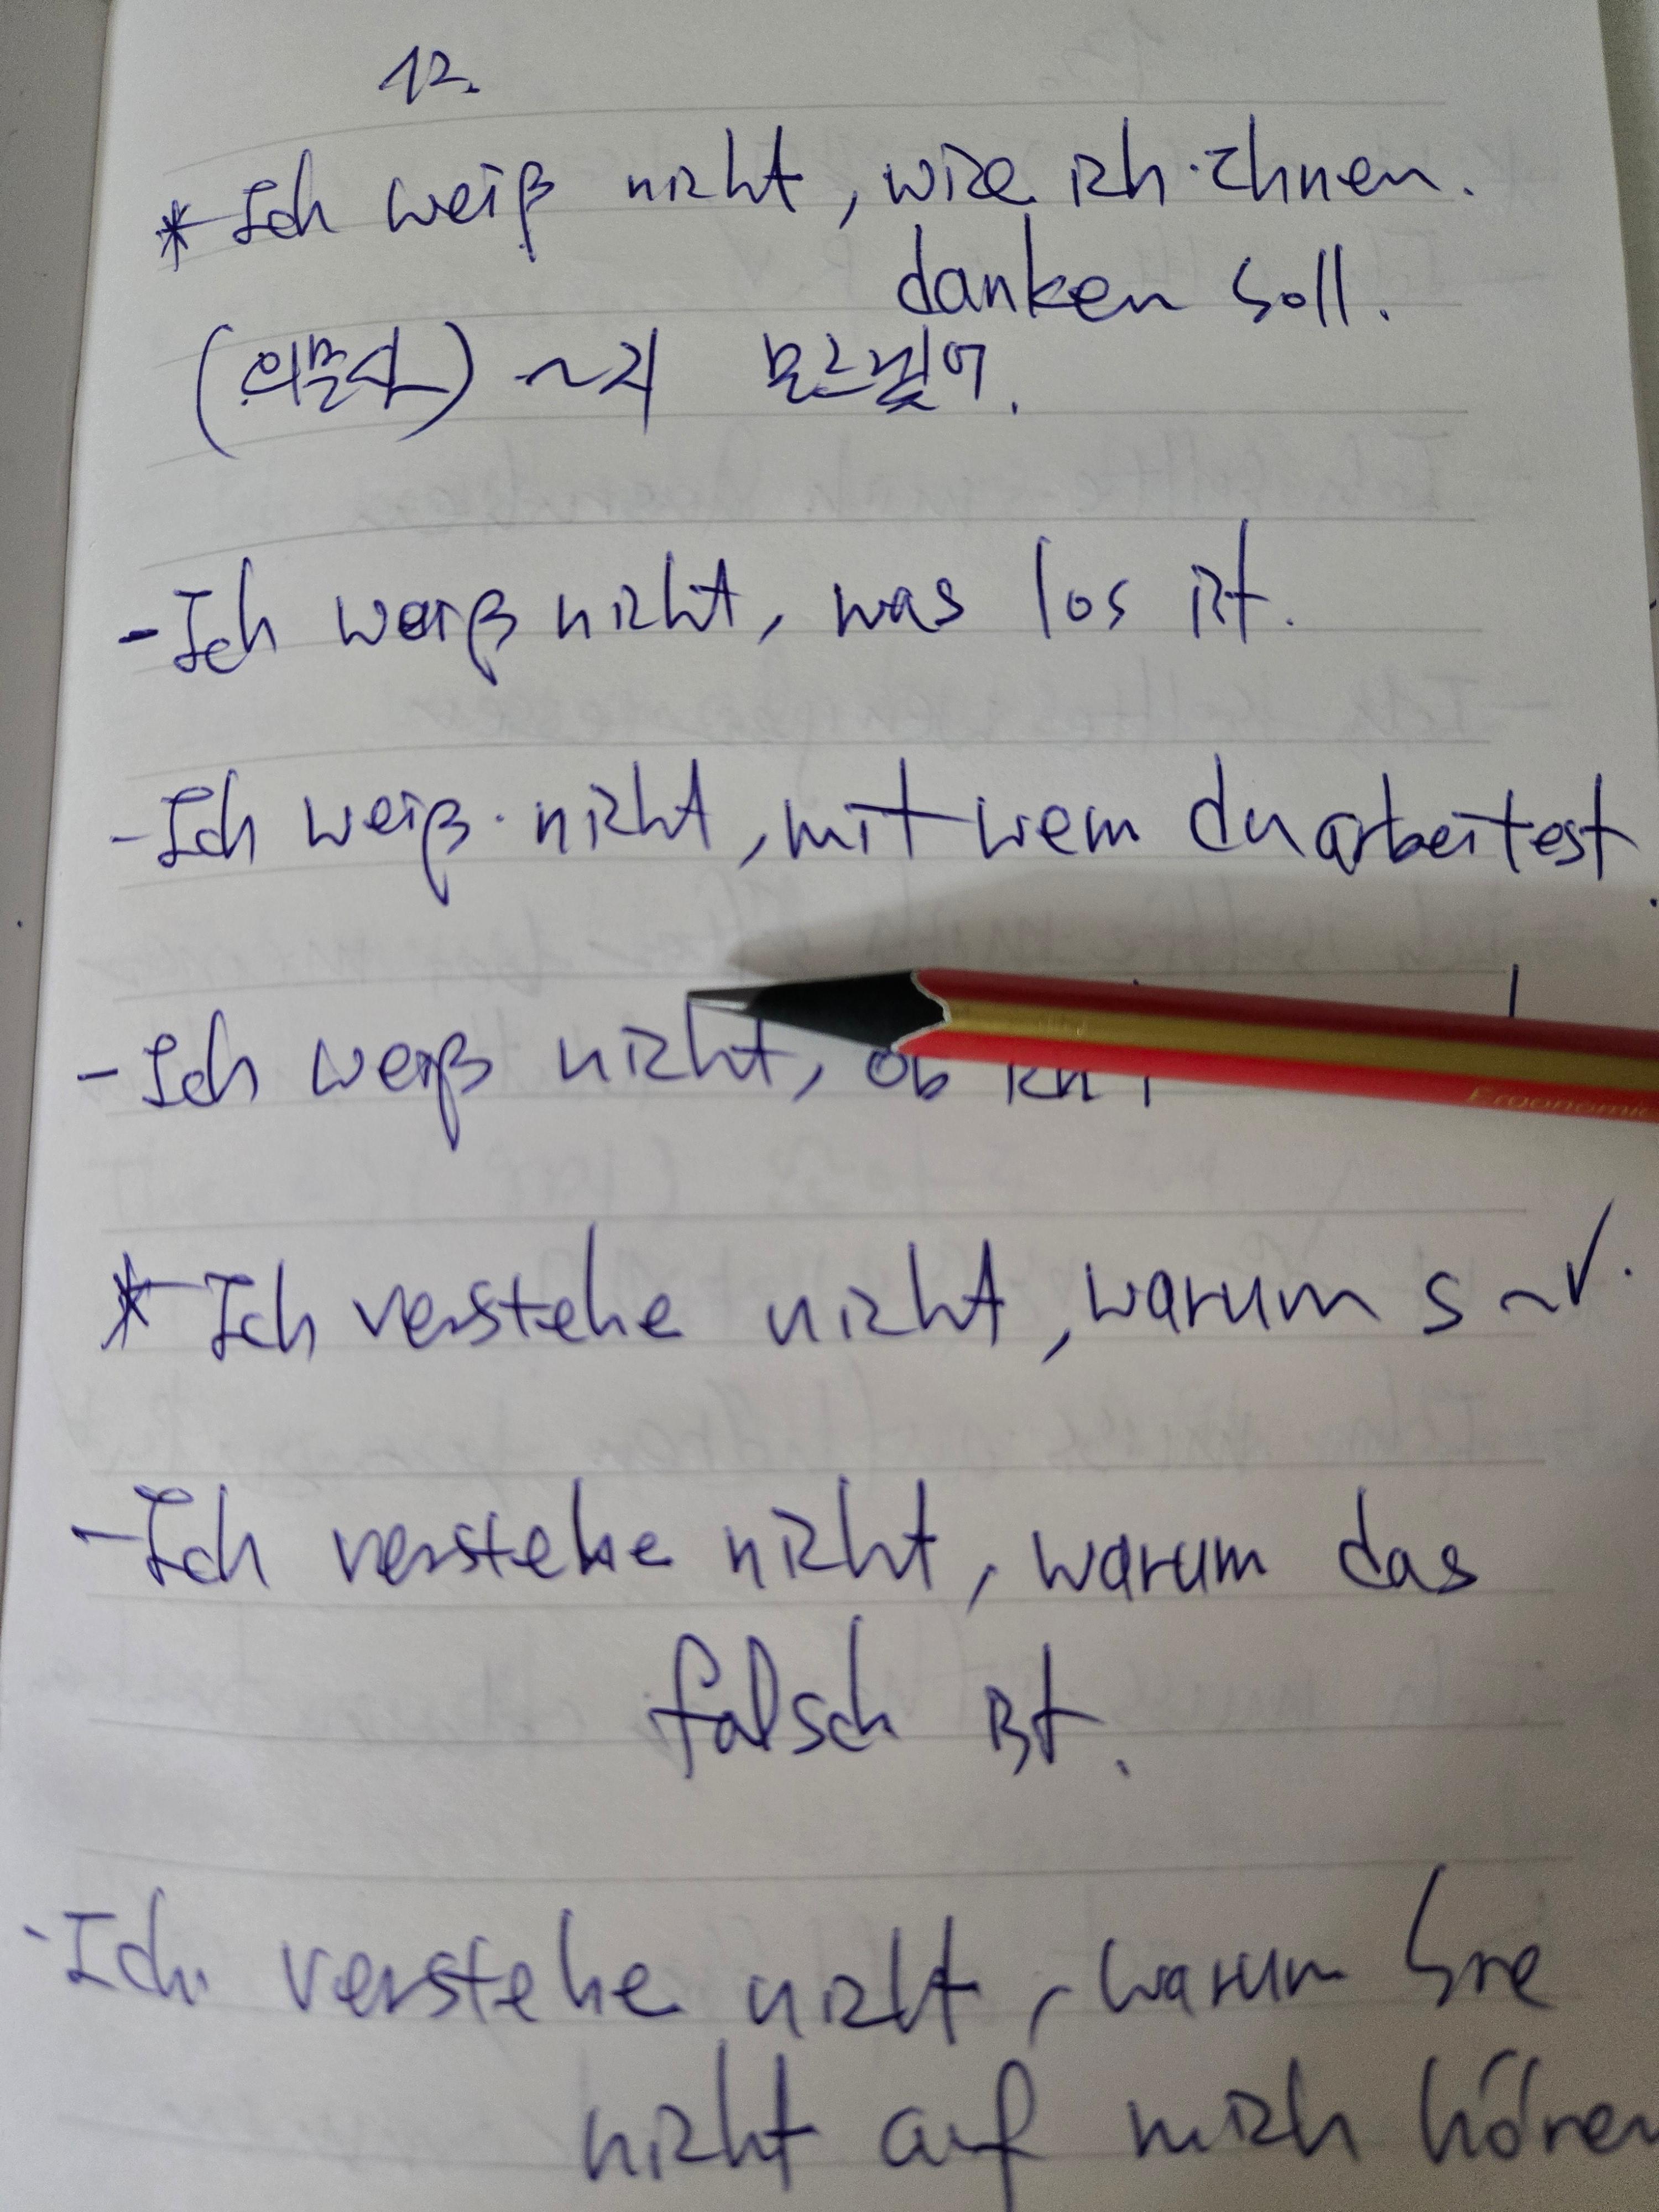 12.
* Ich weiß nicht, wie ich Ihnen.
danken soll.
(의문사) ~지 모르겠어.
- Ich weiß nicht, was los ist.
- Ich weiß nicht, mit wem du arbeitest.
- Ich weiß nicht, ob ich
Ergonomic
* Ich verstehe nicht, warum S ~ V.
- Ich verstehe nicht, warum das
falsch ist.
- Ich verstehe nicht, warum Sie
nicht auf mich hören